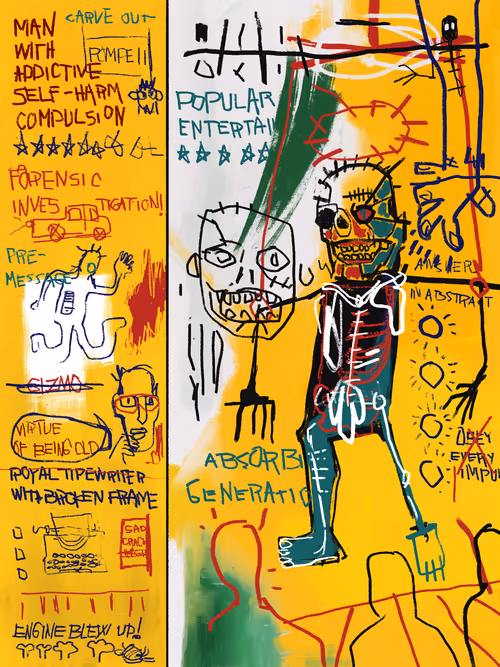 MAN
WITH
ADDICTIVE
SELF-HARM
COMPULSION
CARVE OUT
POMPEII
FORENSIC
INVES TIGATION!
PRE-
MESSAGE
GIZMO
VIRTUE
OF BEING OLD
ROYAL TIPEWRITER
WITH BROKEN FRAME
SAD
ENGINE BLEW UP!
POPULAR
ENTERTAI
ANSWERS
IN ABSTRACT
OBEY
EVERY
IMPUL
ABSORBI
GENERATIO